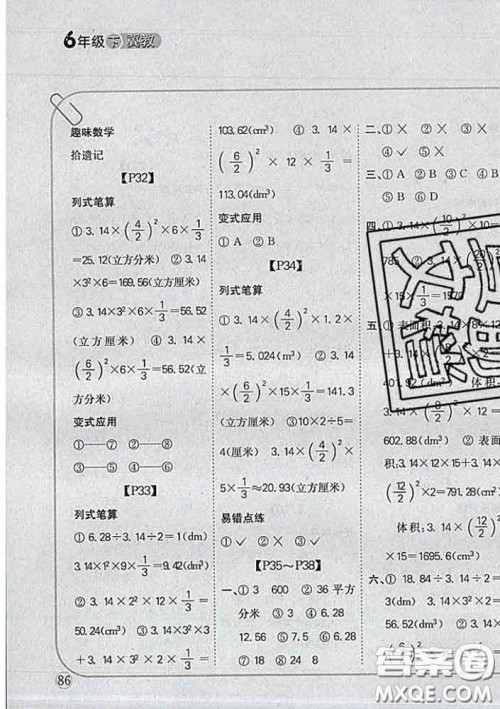 6年级 下 冀教
趣味数学
拾遗记
【P32】
列式笔算
① 3.14×(4/2)²×6×1/3
=25.12(立方分米) ②
3.14×3²×6=169.56(立方分米)
③3.14×3²×6×1/3=56.52
(立方厘米) ④ 3.14×
(6/2)²×6×1/3=56.52(立方
分米)
变式应用
①——⑦ ②——⑧
③——⑤ ④——⑥
【P33】
列式笔算
① 6.28÷3.14÷2=1(dm)
3.14×1²×9×1/3=9.42(dm³)
② 3.14×2²×12×1/3=
50.24(cm³) ③ 3.14×3²
×12×1/3+3.14×3²×2/3=
86
103.62(cm³) ④ 3.14×
(6/2)²×12×1/3=
113.04(dm³)
变式应用
①A ②B
【P34】
列式笔算
① 3.14×(4/2)²×1.2×
1/3=5.024(m³) ② 3.14×
(6/2)²×15×1/3=141.3
(立方厘米) ③10×2÷5=
4(厘米) 3.14×(4/2)²×
5×1/3≈20.93(立方厘米)
易错点练
①✓ ②× ③✓
【P35～P38】
一、①3 600 ②36 平方
分米 ③4 ④6.28
12.56 ⑤7.5 ⑥6.28
⑦18 ⑧24 8
二、①× ②× ③×
④✓ ⑤✓ ⑥×
三、①A ②B ③C ④B
⑤B ⑥D
四、①3.14×(10/2)²×10
785 ②3.14×
×15×1/3=1570
五、①表面积:3.14×8×12
+3.14×
401.92(dm²) 体积:
3.14×(8/2)²×12=
602.88(dm³) ②表面
积:3.14×12×15+3.14×
(12/2)²×2=791.28(cm²)
体积:3.14×(12/2)²
×15=1695.6(cm³)
六、①18.84÷3.14÷2=
(dm)
56.52(dm³) ②3.14×
答案圈
MXQE.COM